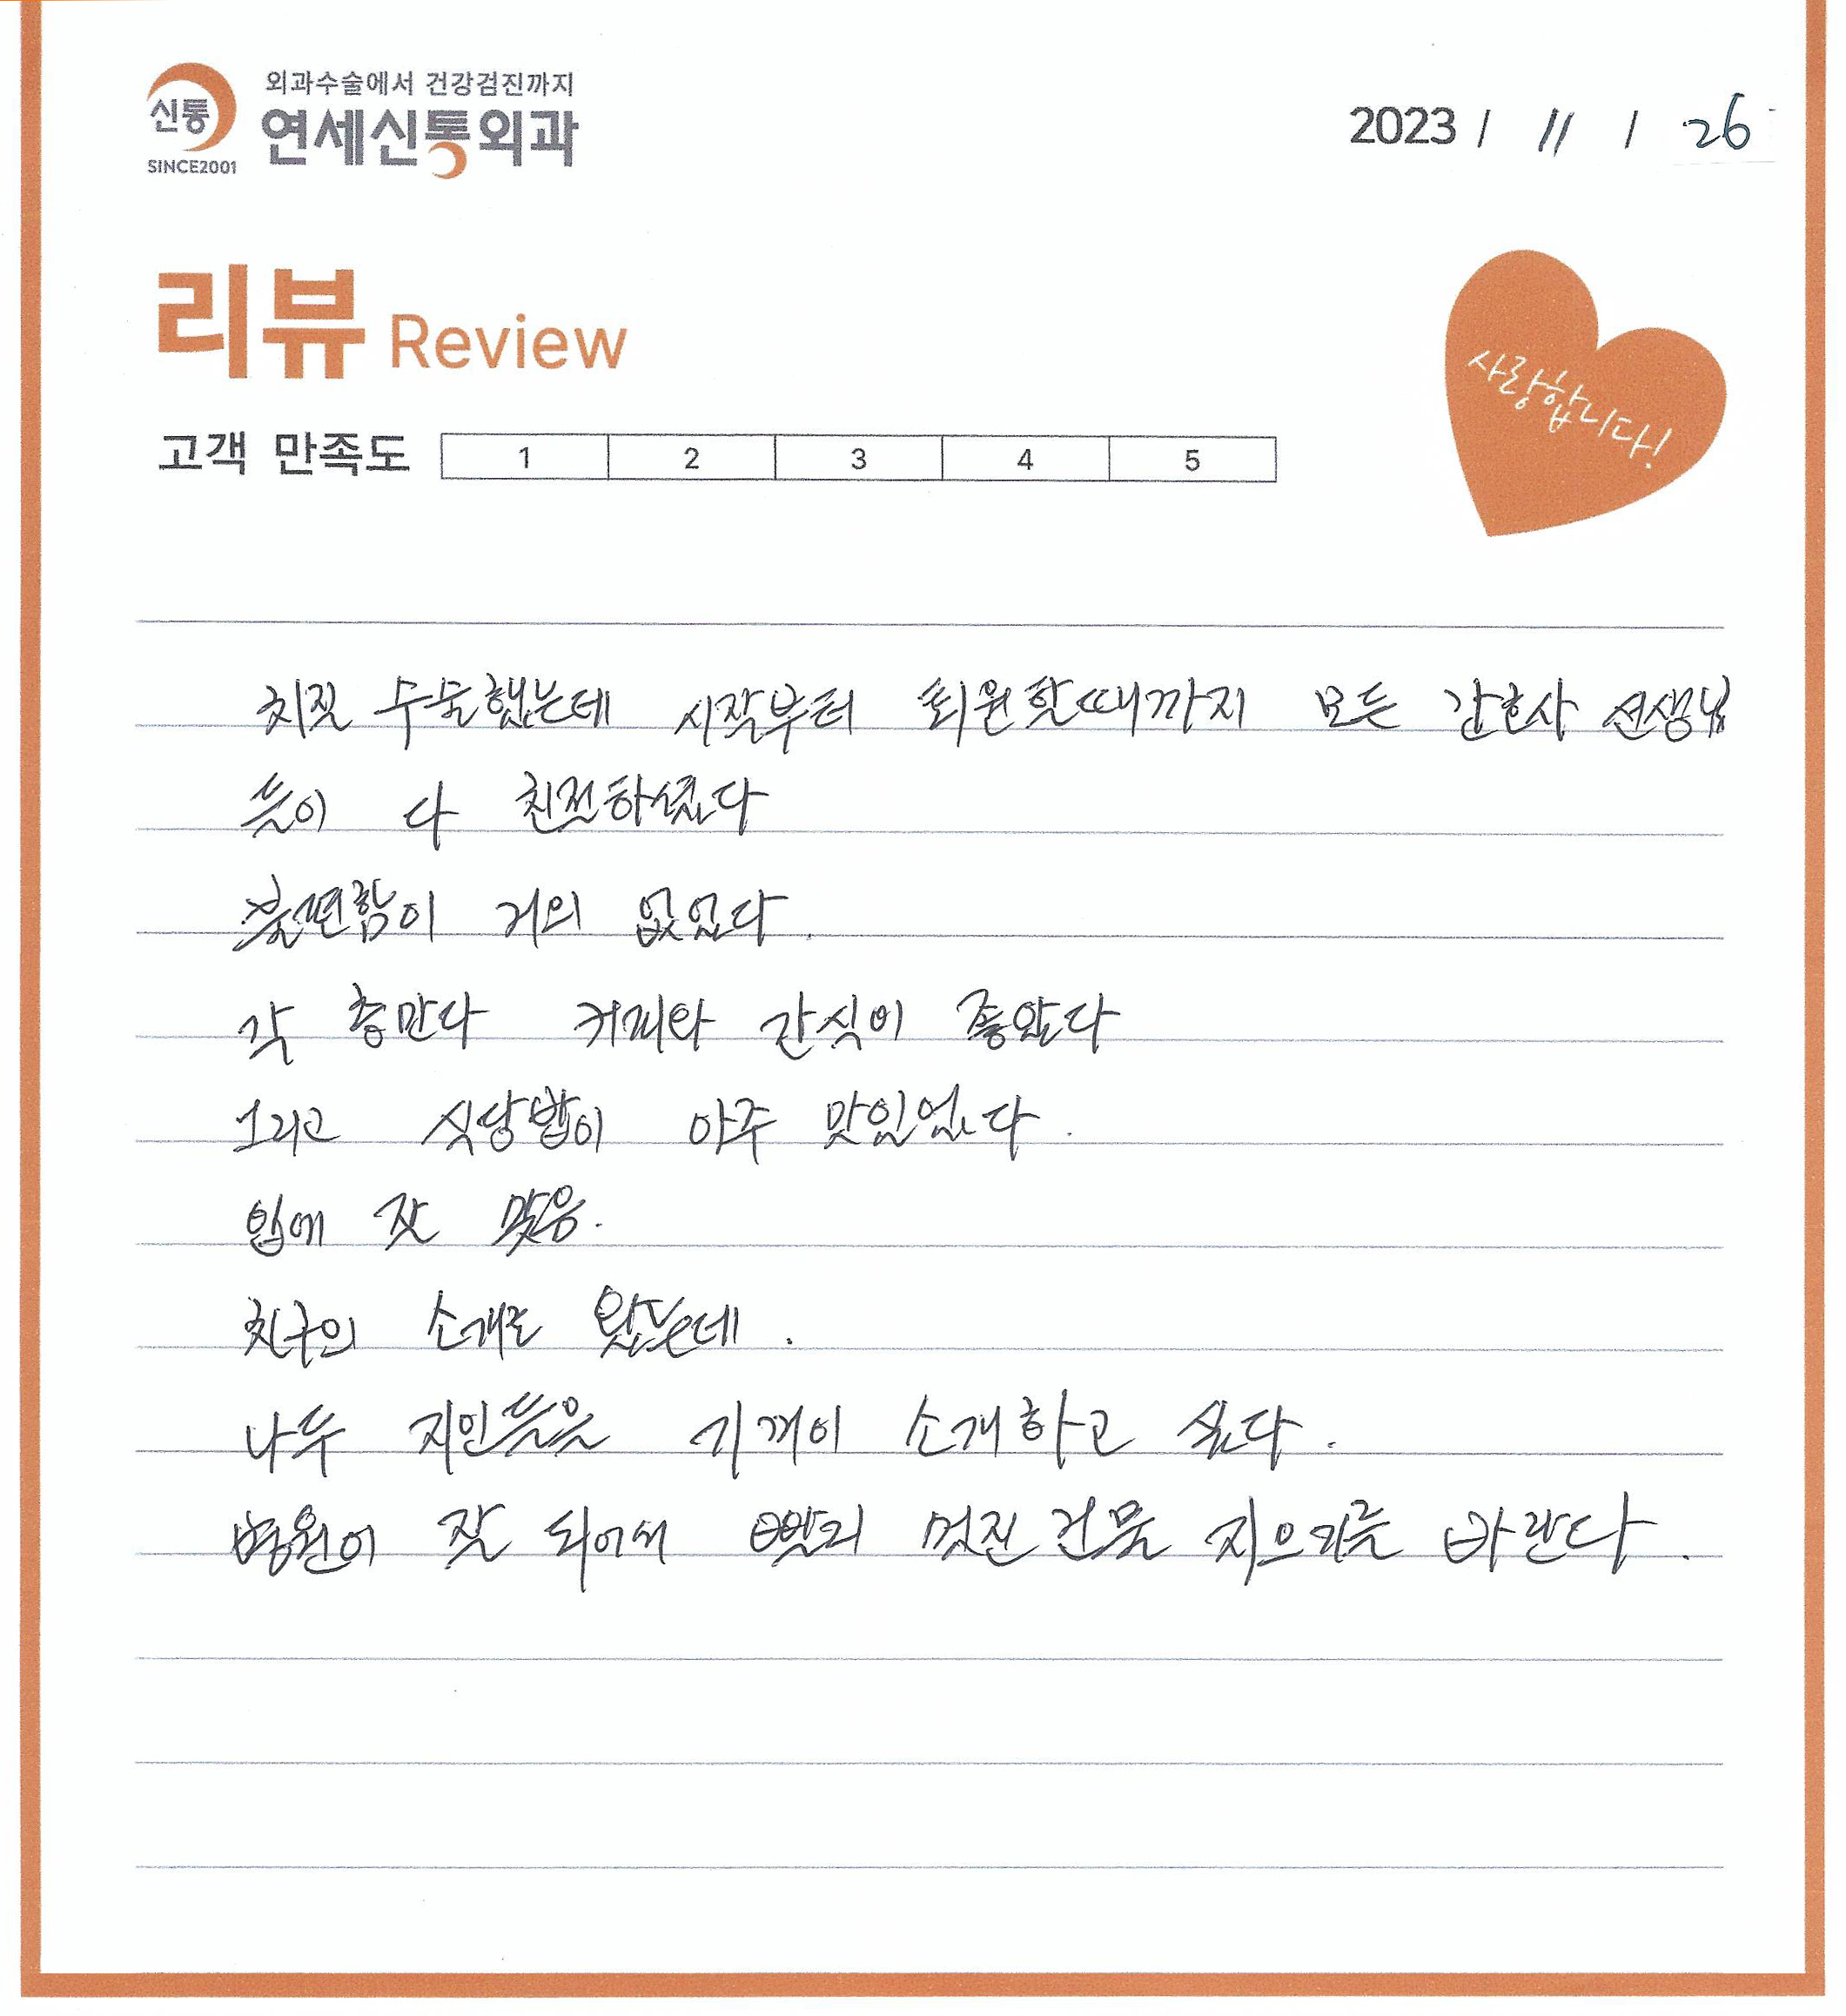 신통
SINCE2001
외과수술에서 건강검진까지
연세신통외과
2023 / 11 / 26
리뷰 Review
사랑합니다!
고객 만족도 1 2 3 4 5
치질 수술했는데 시작부터 퇴원할때까지 모든 간호사 선생님
들이 다 친절하셨다
불편함이 거의 없었다.
각 층만다 커피와 간식이 좋았다
그리고 식당밥이 아주 맛있었다.
입에 잘 맞음.
친구의 소개로 왔는데.
나두 지인들을 기꺼이 소개하고 싶다.
병원이 잘 되어서 빨리 멋진 건물 지으기를 바란다.